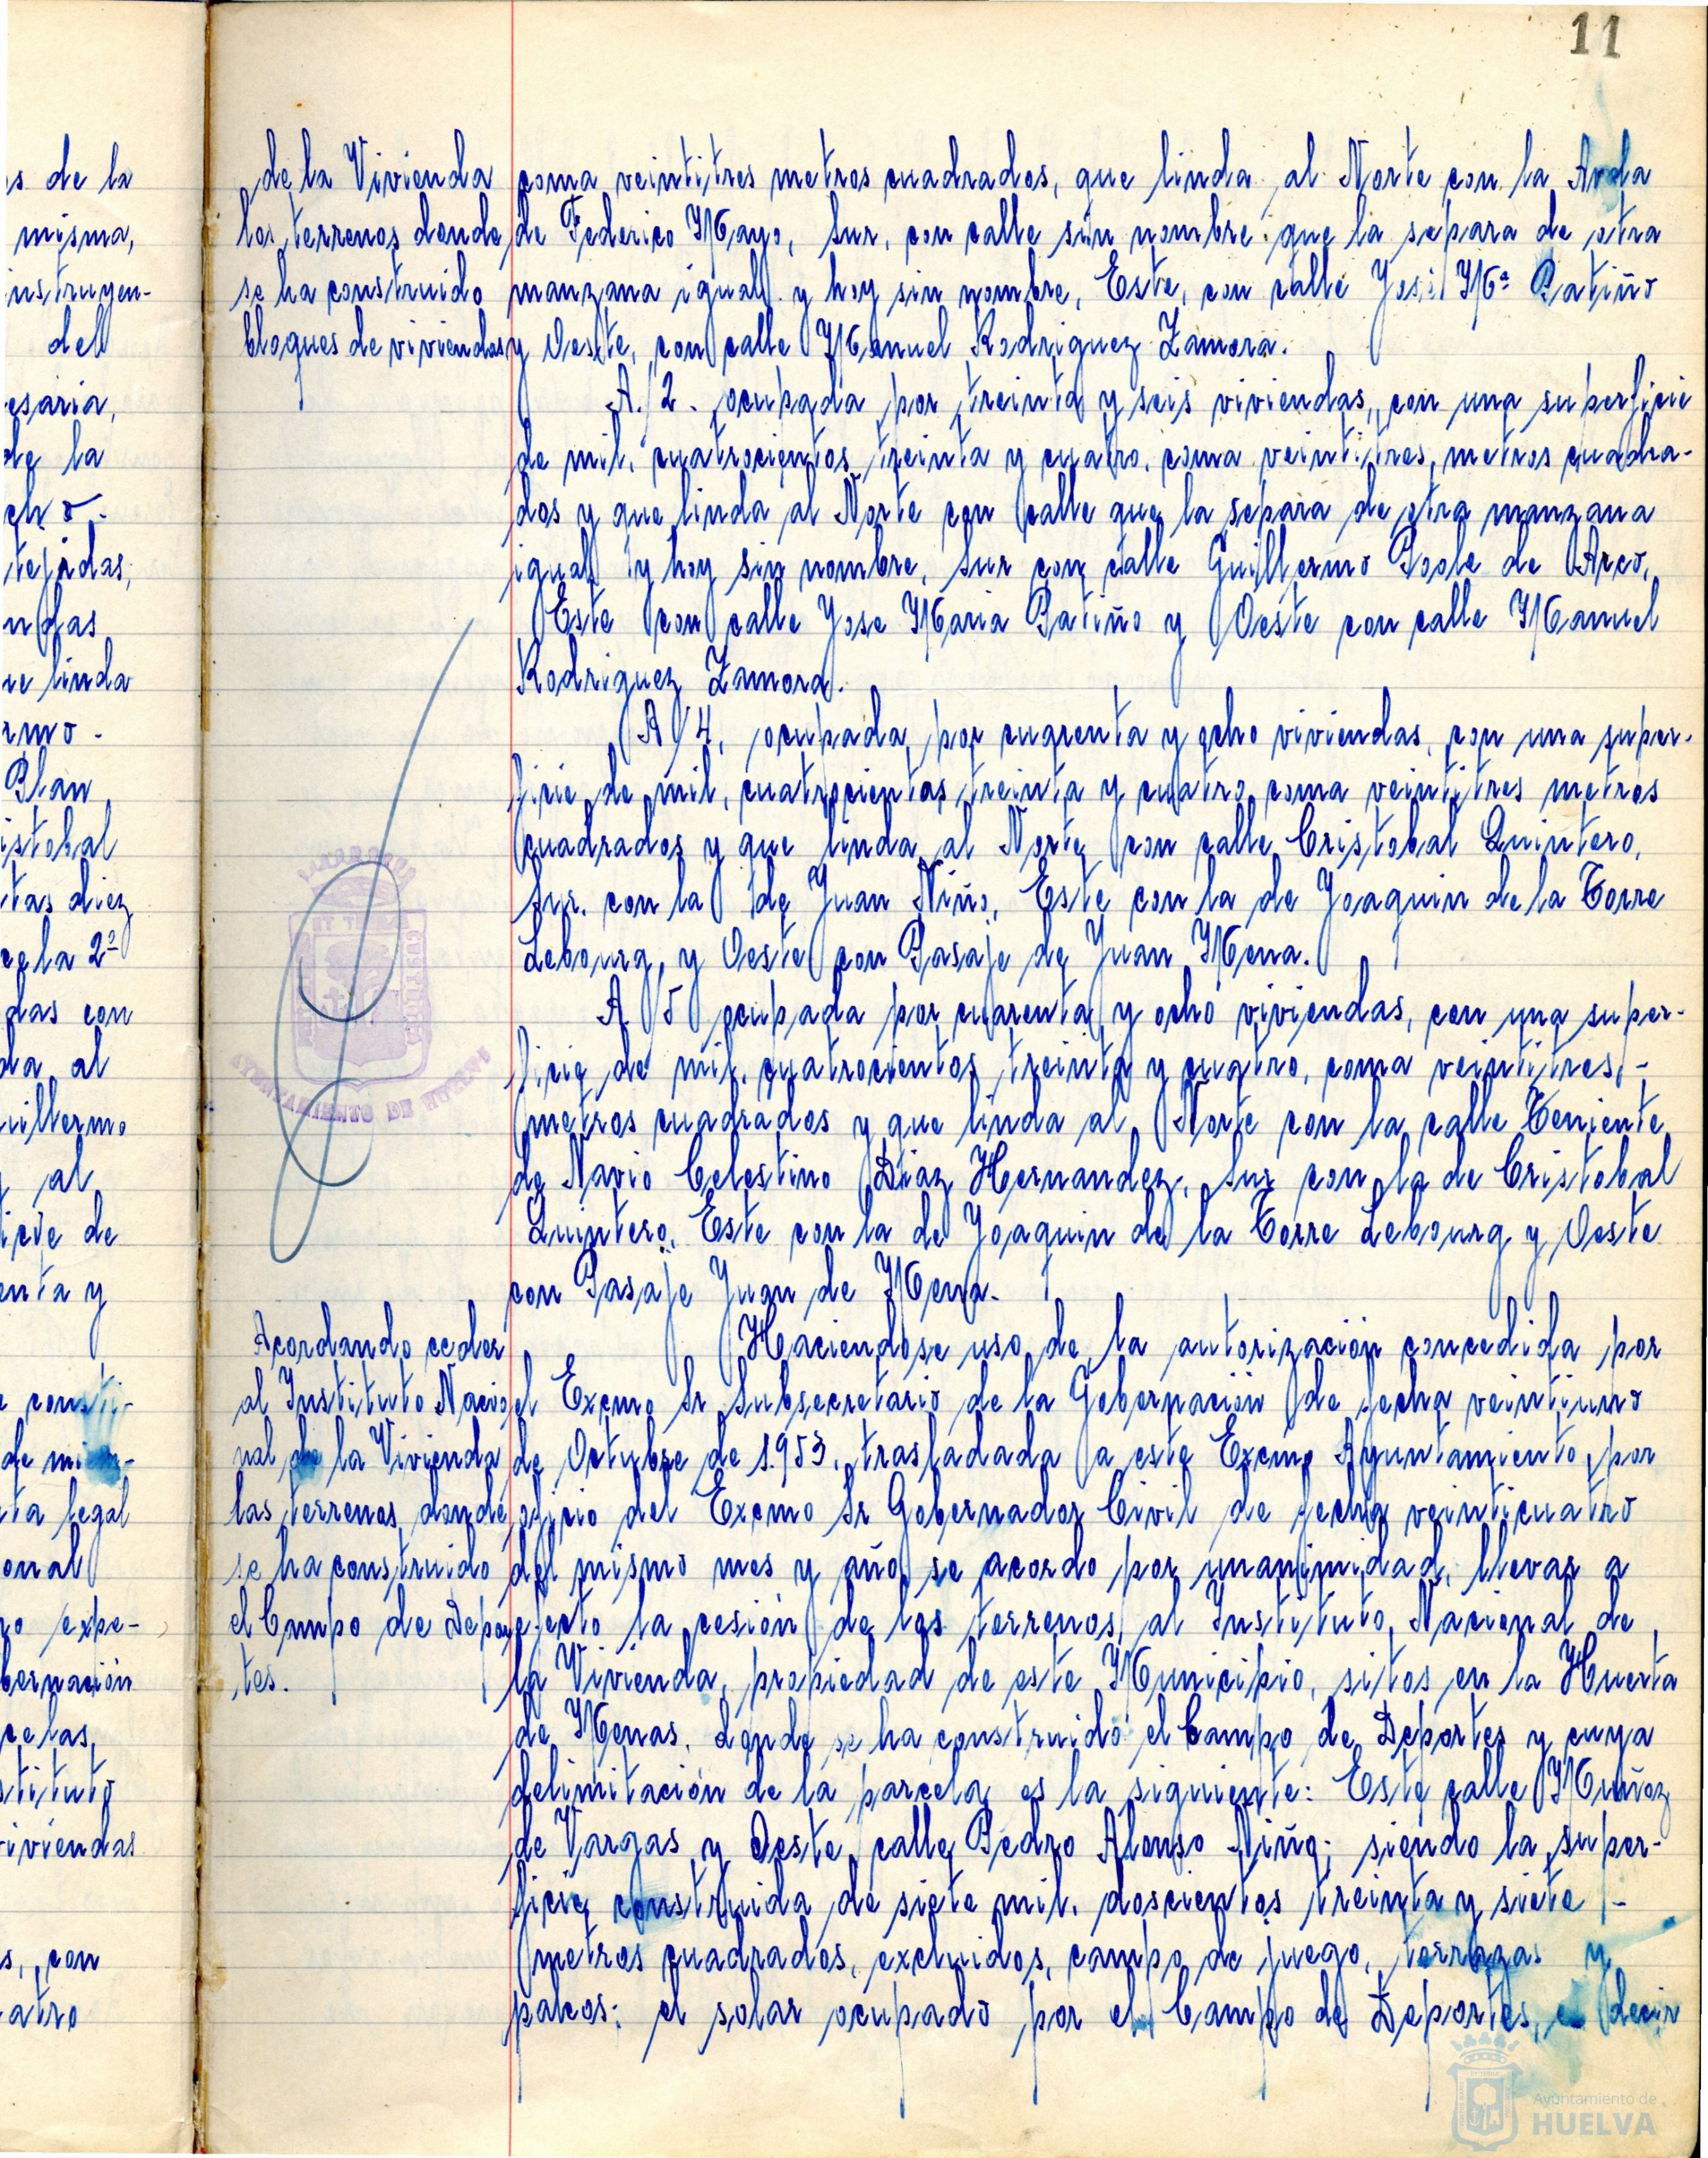 11
s de la
misma,
instruyen-
del
esaria,
de la
cho.
tejidas,
ndas
ue linda
rmo -
Plan
istobal
tas diez
cela 2ª
das con
da al
uillermo
al
icie de
enta y
consti-
de miem-
ta legal
onal
ro expe-
bernación
celas,
stituto
viviendas
s, con
atro
de la Vivienda
los terrenos donde
se ha construido
bloques de viviendas
coma veintitres metros cuadrados, que linda al Norte con la Avda
de Federico Mayo, Sur, con calle sin nombre que la separa de otra
manzana igual y hoy sin nombre, Este, con calle José Mª Patiño
y Oeste, con calle Manuel Rodriguez Zamora.
A. 2. ocupada por treinta y seis viviendas, con una superficie
de mil, cuatrocientos treinta y cuatro, coma veintitres, metros cuadra-
dos y que linda al Norte con calle que la separa de otra manzana
igual y hoy sin nombre, Sur con calle Guillermo Poole de Arco,
Este con calle Jose Maria Patiño y Oeste con calle Manuel
Rodriguez Zamora.
A 4, ocupada por cuarenta y ocho viviendas, con una super-
ficie de mil, cuatrocientas treinta y cuatro coma veintitres metros
cuadrados y que linda al Norte con calle Cristobal Quintero,
Sur, con la de Juan Niño, Este con la de Joaquin de la Torre
Lebourg, y Oeste con Pasaje de Juan Mena.
A 5 ocupada por cuarenta y ocho viviendas, con una super-
ficie de mil, cuatrocientos treinta y cuatro, coma veintitres,-
metros cuadrados y que linda al Norte con la calle Teniente
de Navio Celestino Diaz Hernandez, Sur con la de Cristobal
Quintero, Este con la de Joaquin de la Torre Lebourg y Oeste
con Pasaje Juan de Mena.
Acordando ceder
al Instituto Nacio
nal de la Vivienda
las terrenos donde
se ha construido
el Campo de Depor
tes.
Haciendose uso de la autorización concedida por
el Excmo Sr Subsecretario de la Gobernación de fecha veintiuno
de Octubre de 1.953, trasladada a este Excmo Ayuntamiento, por
oficio del Excmo Sr Gobernador Civil de fecha veinticuatro
del mismo mes y año se acordo por unanimidad, llevar a
efecto la cesión de los terrenos, al Instituto Nacional de
la Vivienda, propiedad de este Municipio, sitos en la Huerta
de Menas, donde se ha construido el Campo de Deportes y cuya
delimitación de la parcela es la siguiente: Este calle Muñoz
de Vargas y Oeste calle Pedro Alonso Niño; siendo la super-
ficie construida de siete mil, doscientos treinta y siete -
metros cuadrados, excluidos, campo de juego, terrazas y
palcos: el solar ocupado por el Campo de Deportes, es decir
AYUNTAMIENTO DE HUELVA
Ayuntamiento de
HUELVA